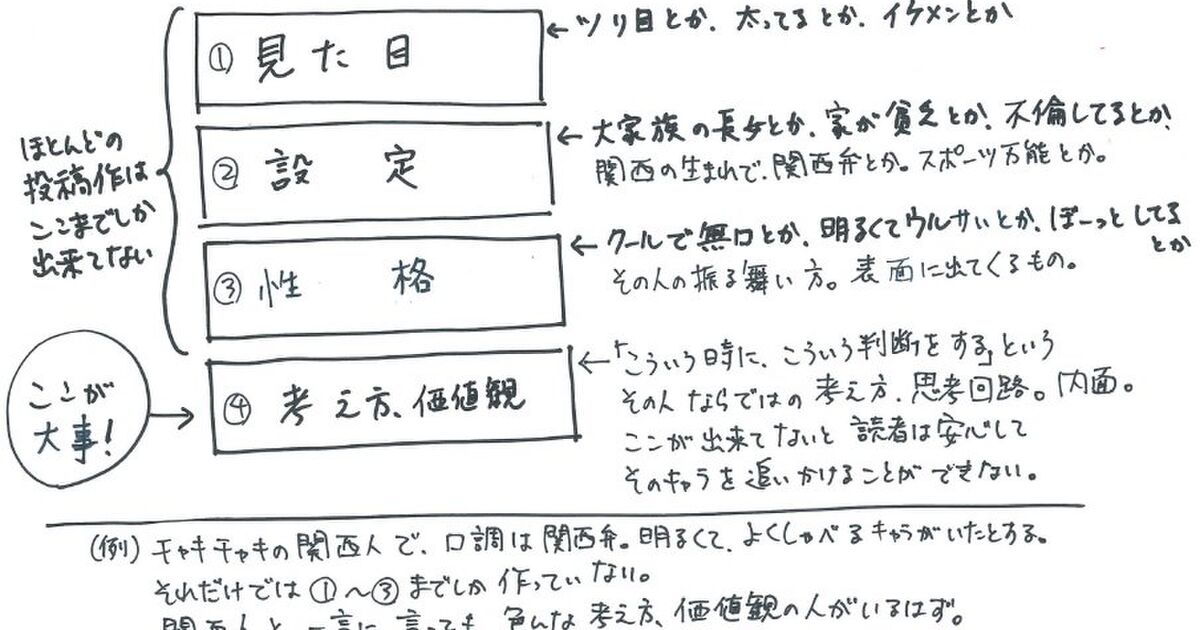 ① 見た目
←ツリ目とか、太ってるとか、イケメンとか
② 設 定
←大家族の長女とか、家が貧乏とか、不倫してるとか、
関西の生まれで、関西弁とか。スポーツ万能とか。
③ 性 格
←クールで無口とか、明るくてウルサいとか、ぼーっとしてる
とか
その人の振る舞い方。表面に出てくるもの。
ほとんどの
投稿作は
ここまでしか
出来てない
④ 考え方、価値観
←「こういう時に、こういう判断をする」という
その人ならではの考え方、思考回路。内面。
ここが出来てないと読者は安心して
そのキャラを追いかけることができない。
ここが
大事!
(例)チャキチャキの関西人で、口調は関西弁。明るくて、よくしゃべるキャラがいたとする。
それだけでは①〜③までしか作っていない。
関西人と一言に言っても、色んな考え方、価値観の人がいるはず。